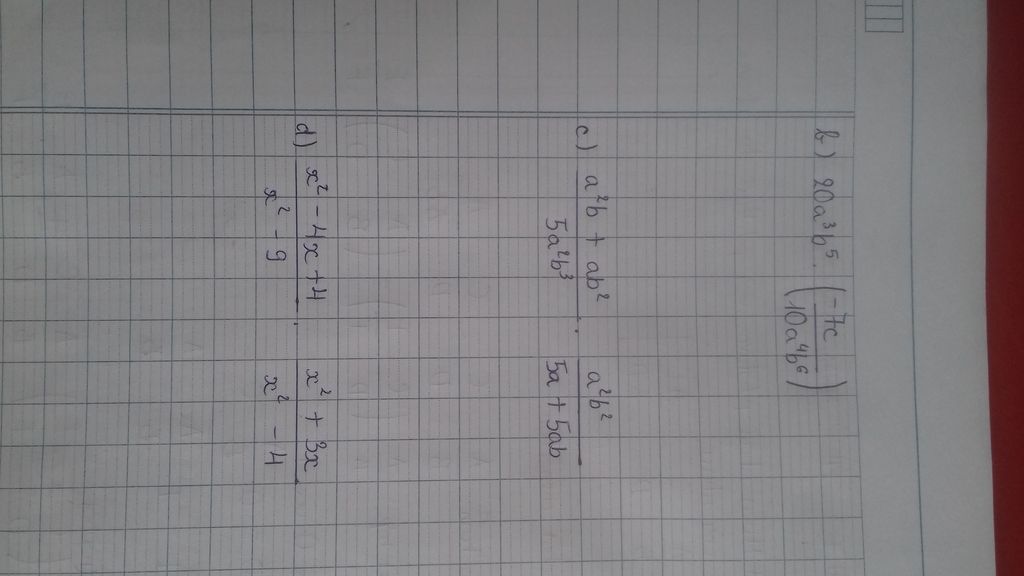 b) 20a³b⁵ · (-7c / 10a⁴b⁶)
c) a²b + ab² / 5a²b³ : a²b² / 5a + 5ab
d) x² - 4x + 4 / x² - 9 · x² + 3x / x² - 4